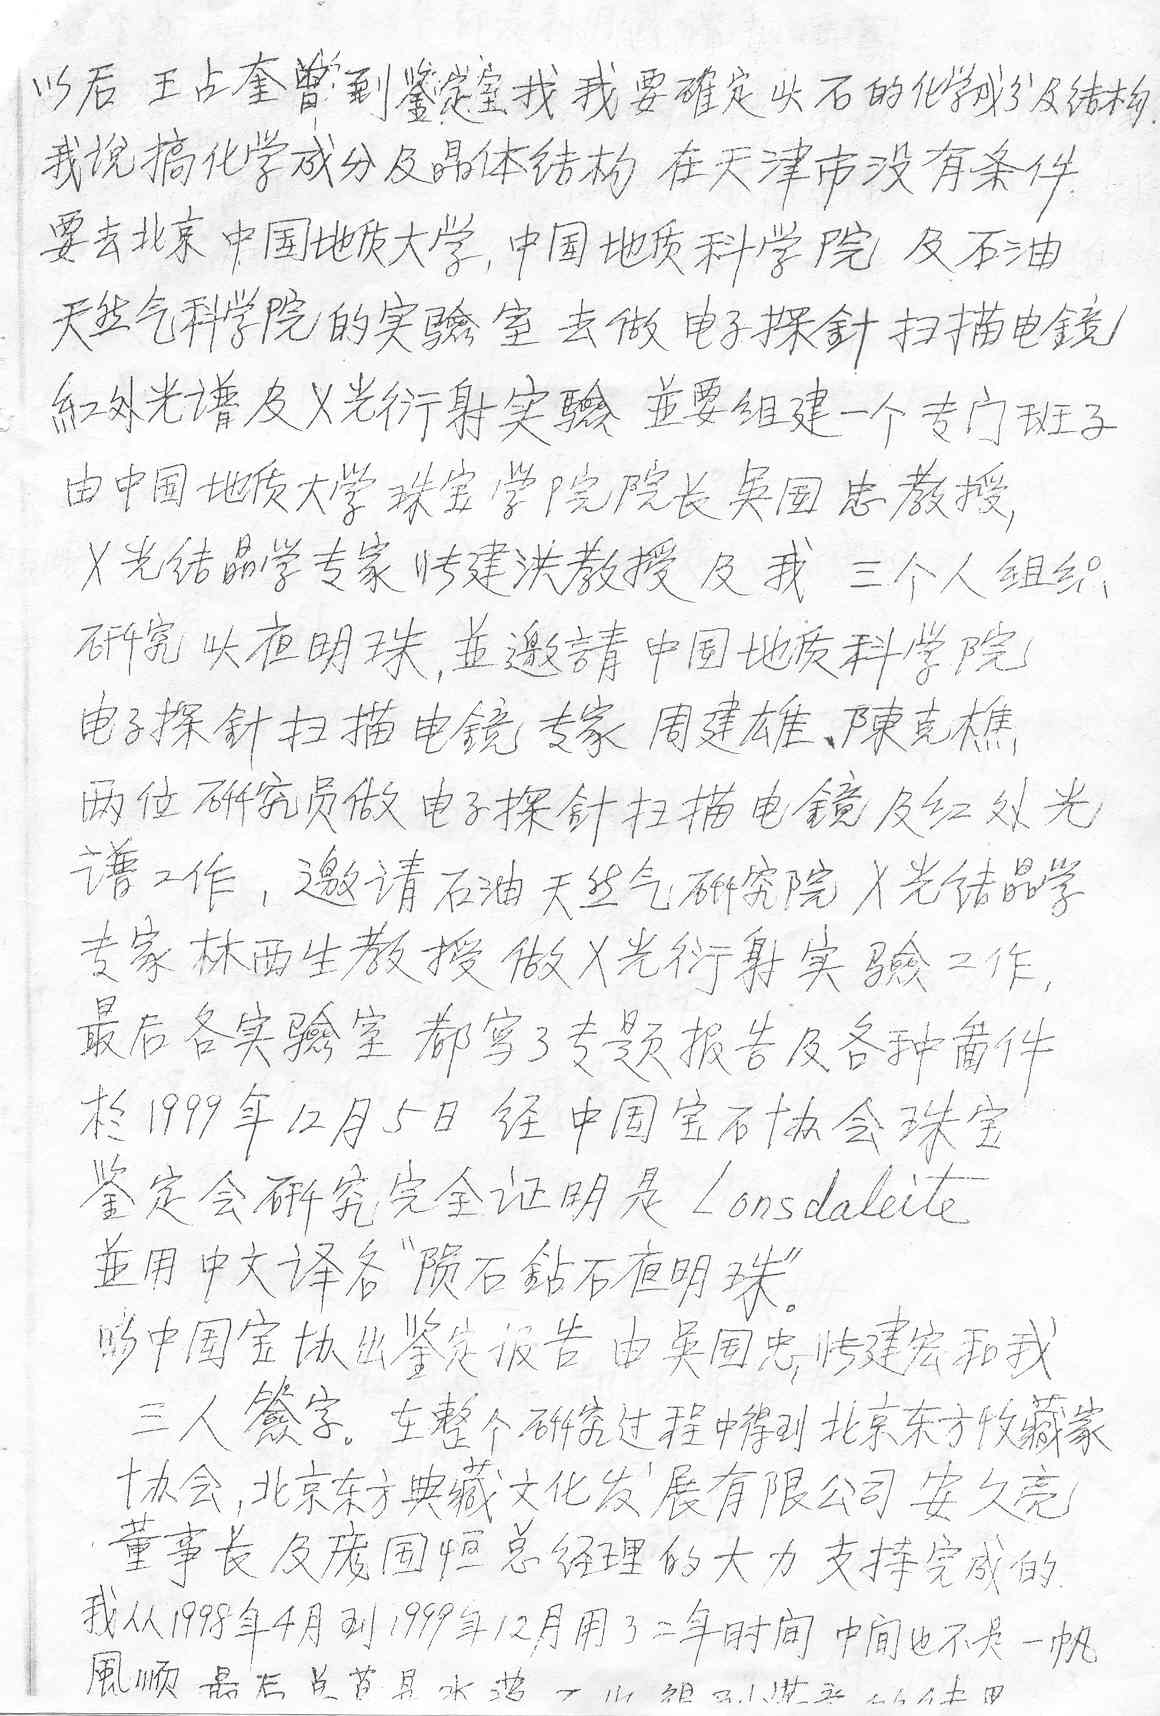 以后 王占奎曾到鉴定室找我要確定此石的化学成分及结构.
我说搞化学成分及晶体结构 在天津市没有条件.
要去北京中国地质大学, 中国地质科学院 及石油
天然气科学院的实驗室去做电子探針扫描电鏡
紅外光谱及X光衍射实驗 並要组建一个专门班子
由中国地质大学珠宝学院院长吴国忠教授,
X光结晶学专家 建洪教授及我 三个人组织
研究此夜明珠, 並邀請中国地质科学院
电子探針扫描电鏡专家周建雄、陳克樵
两位研究员做电子探針扫描电鏡及红外光
谱工作, 邀请石油天然气研究院X光结晶学
专家林西生教授做X光衍射实驗工作,
最后各实驗室都写了专题报告及各种番件
於1999年12月5日 经中国宝石协会珠宝
鉴定会研究完全证明是Lonsdaleite
並用中文译名“陨石鉆石夜明珠”。
中国宝协出鉴定报告由吴国忠, 建宏和我
三人簽字。在整个研究过程中得到北京东方收藏家
协会, 北京东方典藏文化发展有限公司安久亮
董事长及庞国恒总经理的大力支持完成的.
我从1998年4月到1999年12月用了二年时间 中间也不是一帆
風顺 最后